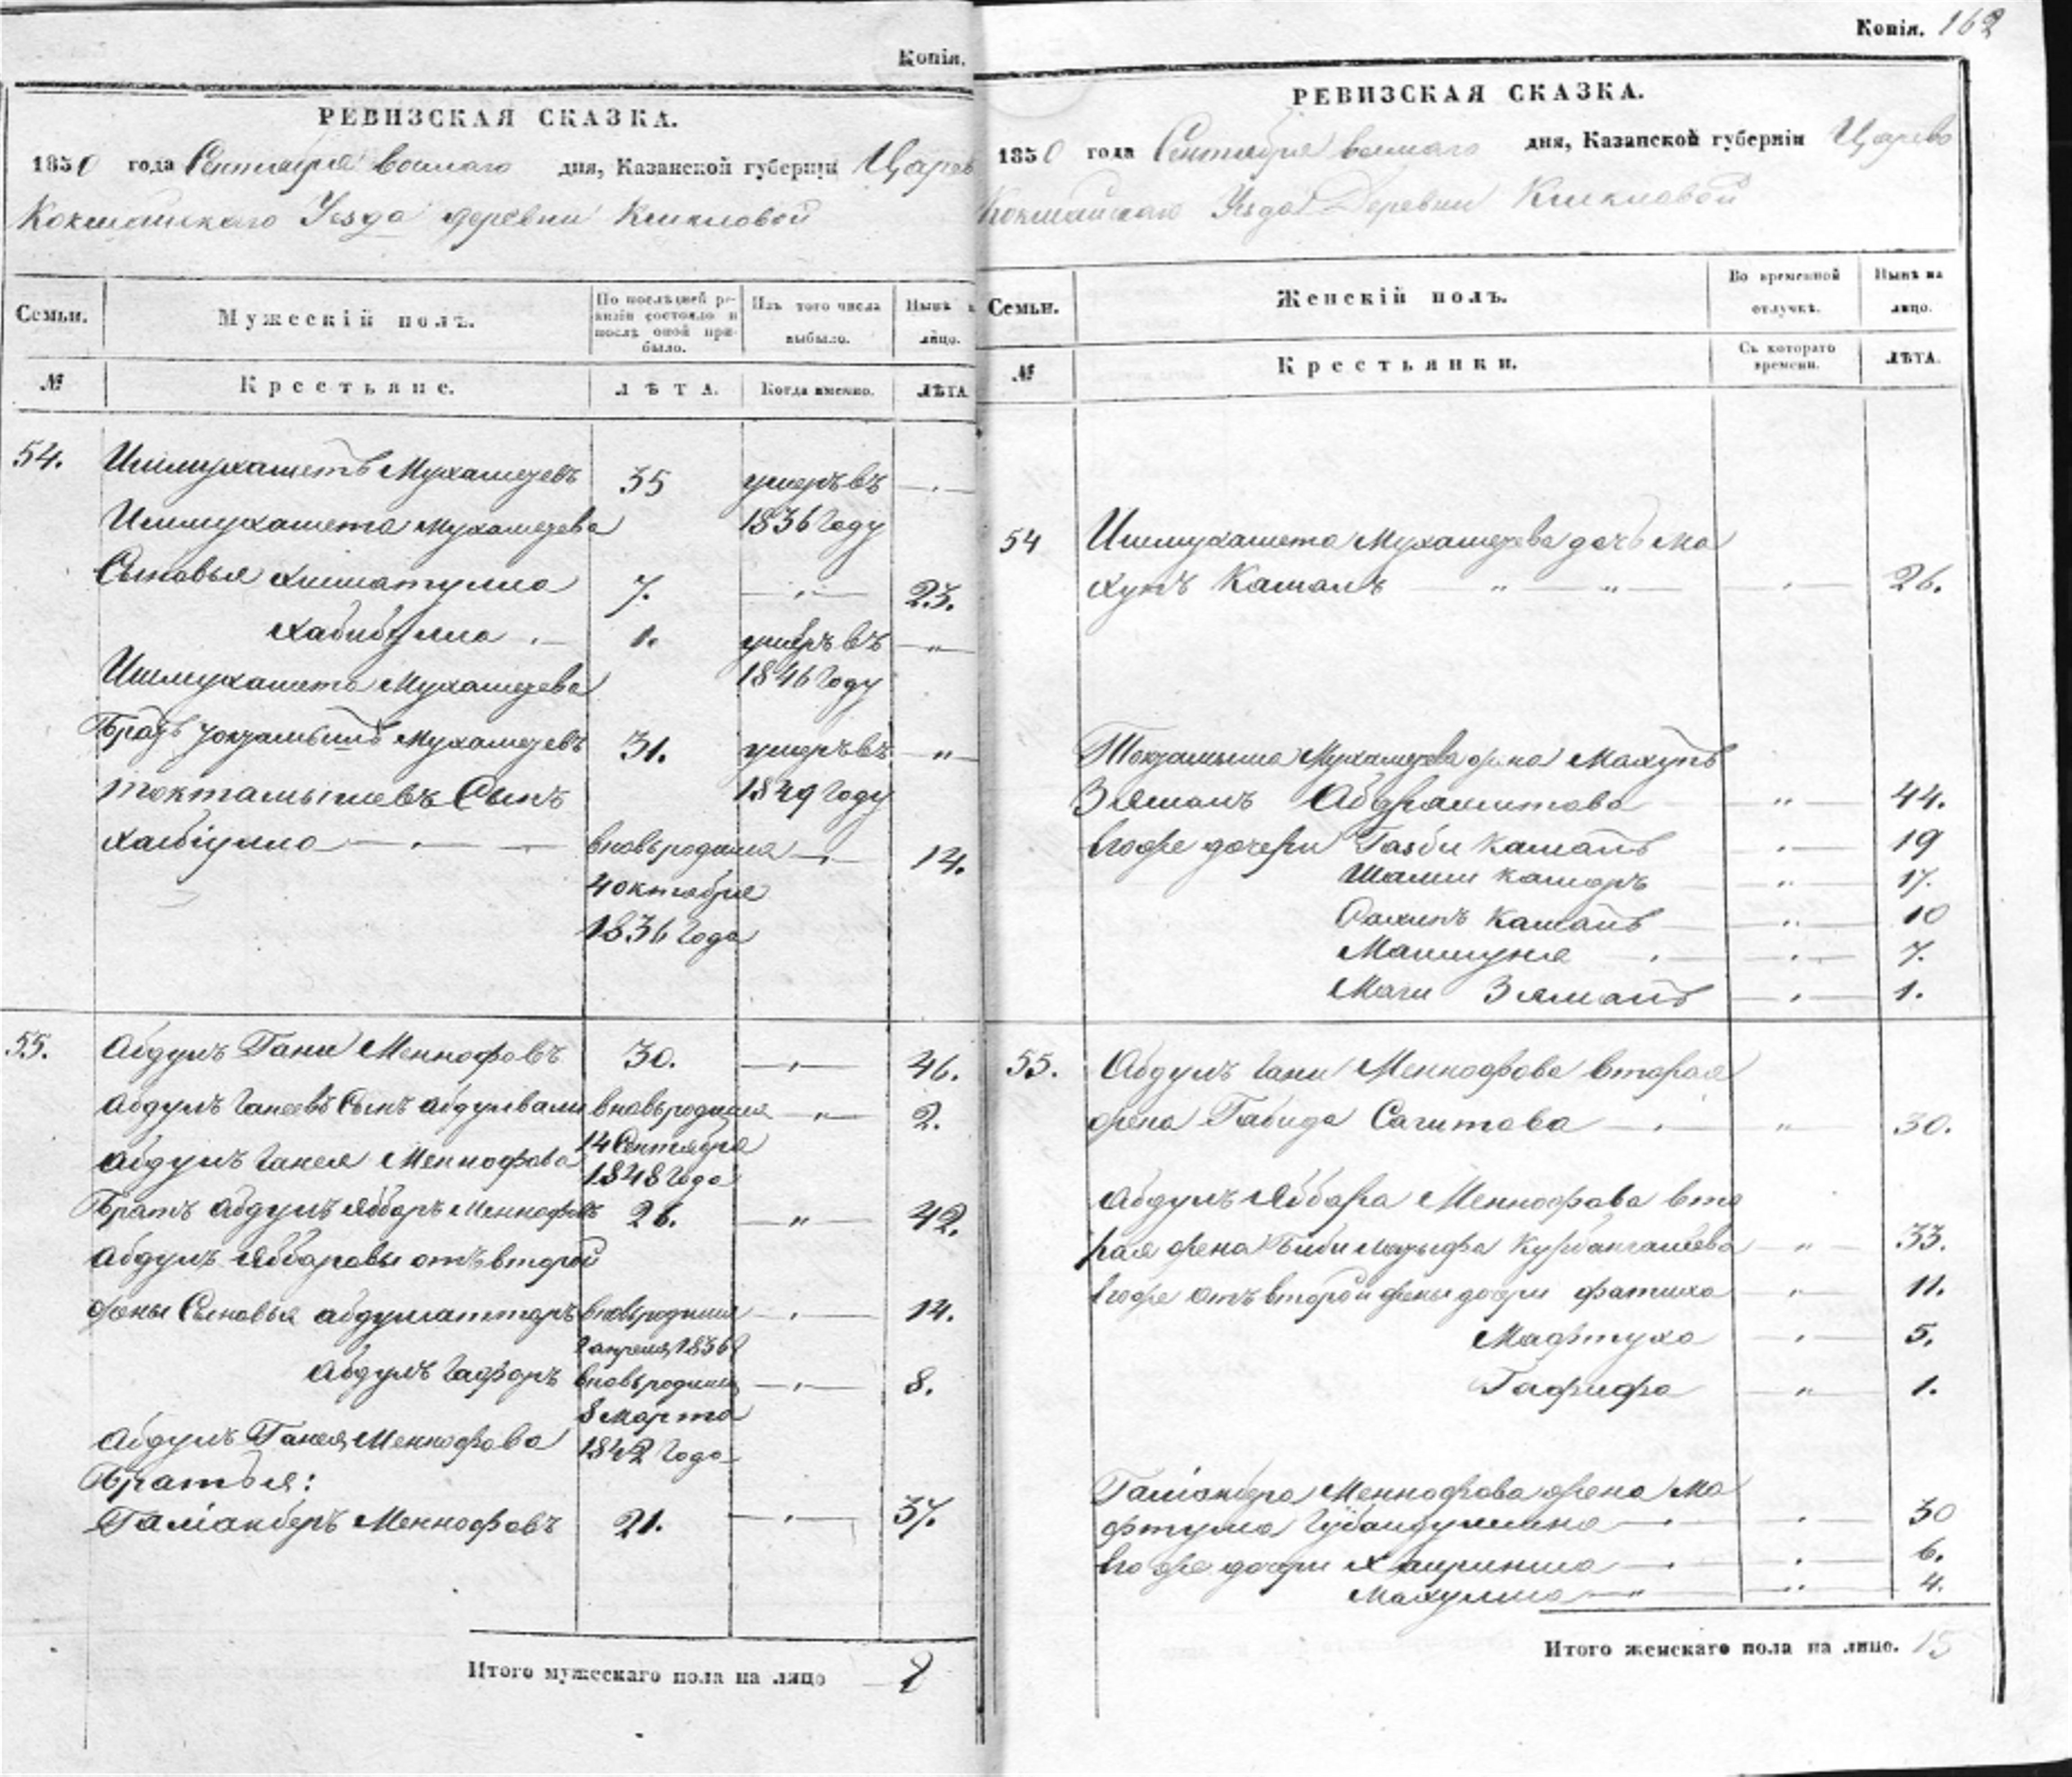 Копія.
РЕВИЗСКАЯ СКАЗКА.
1850 года Сентября восмаго дня, Казанской губерніи Царево
Кокшайскаго Уезда деревни
Семьи. Мужескій полъ. По послѣдней ревизіи состояло и послѣ оной прибыло. Изъ того числа выбыло. Нынѣ на лицо.
№ Крестьяне. ЛѢТА. Когда именно. ЛѢТА
54. Ишмухаметъ Мухамезевъ 35 умеръ въ
Ишмухамета Мухамезева 1836 году
Сыновья Хисматулла 7. 23.
Хабибулла 1. умеръ въ
Ишмухамета Мухамезева 1846 году
Братъ Мухамезевъ 31. умеръ въ
Токтамышевъ Сынъ 1849 году
вновь родился 14.
4 октября
1836 года
55. Абдулъ Гани Меннофовъ 30. 46.
Абдулъ Ганеевъ Сынъ Абдулвали вновь родился 2.
14 Сентября
Абдулъ Ганея Меннофова 1848 года
Братъ Абдулъ Яббаръ Меннофовъ 26. 42.
Абдулъ Яббаровы отъ второй
жены Сыновья Абдулгаттаръ вновь родился 14.
1 апреля 1836
Абдулъ Гафаръ вновь родился 8.
8 марта
Абдулъ Ганея Меннофова 1842 года
Братья:
Галіакберъ Меннофовъ 21. 37.
Итого мужескаго пола на лицо 8
Копія. 162
РЕВИЗСКАЯ СКАЗКА.
1850 года Сентября восмаго дня, Казанской губерніи Царево
Кокшайскаго Уезда Деревни
Семьи. Женскій полъ. Во временной отлучкѣ. Нынѣ на лицо.
№ Крестьянки. Съ котораго времени. ЛѢТА.
54 Ишмухамета Мухамезева дочь Ма
хупъ Камалъ 26.
Токтамыша Мухамезева жена Махупъ
Зямалъ Абдряшитова 44.
Егоже дочери Газби Камалъ 19
Шамси камеръ 17.
Камалъ 10
Маймуня 7.
Маги Зямалъ 1.
55. Абдулъ Гани Меннофова вторая
жена Габида Сагитова 30.
Абдулъ Яббара Меннофова вто
рая жена Биби Курбангалеева 33.
Егоже отъ второй жены дочери Фатиха 11.
Мафтуха 5.
Гафифа 1.
Галіакбера Меннофова жена Ма
фтула Губайдуллина 30
Егоже дочери Хаирниса 6.
4.
Итого женскаго пола на лице. 15